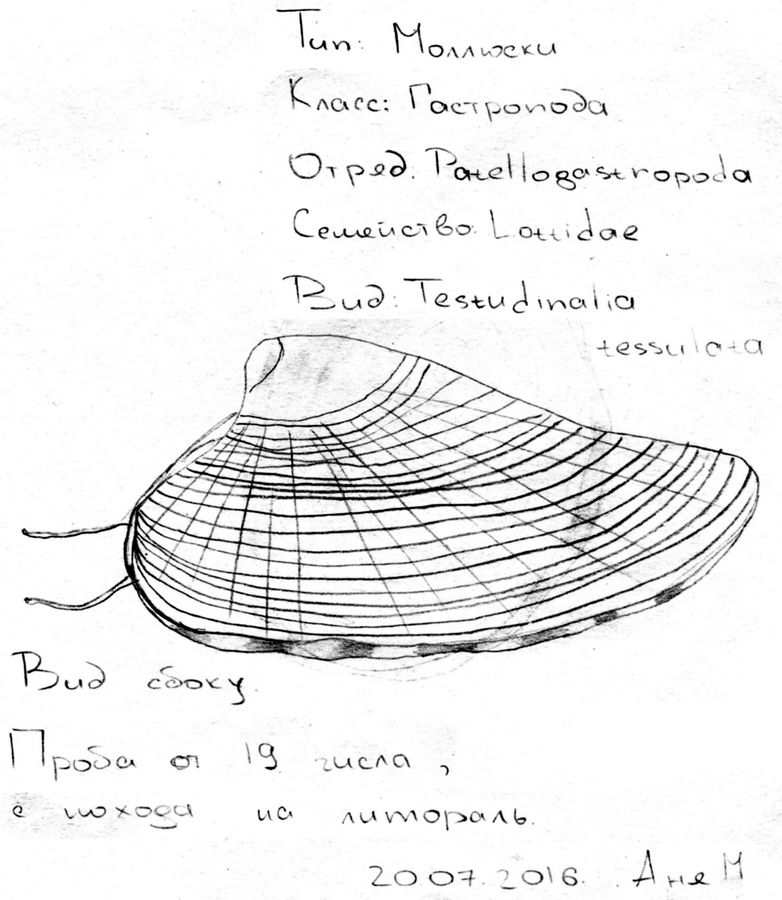 Тип: Моллюски
Класс: Гастропода
Отряд: Patellogastropoda
Семейство: Lottidae
Вид: Testudinalia
tessulata
Вид сбоку.
Проба от 19 числа,
с похода на литораль.
20.07.2016. Аня М